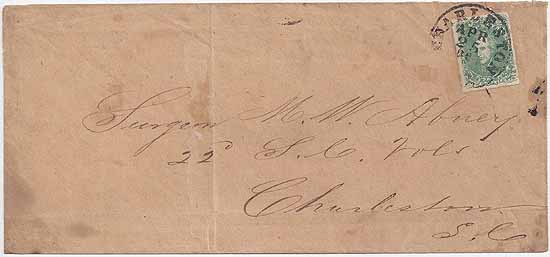 CHARLESTON
APR
25
Surgeon M. W. Abney
22d S. C. Vols
Charleston
S. C